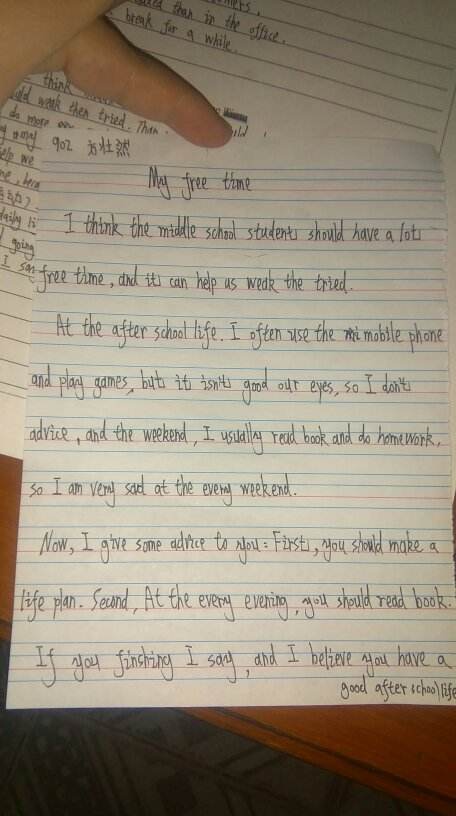 eaded than in the office.
break for a while.
think
uld weak then tried. Than
do more
help we
daily li
going
902
My free time
I think the middle school students should have a lot
free time, and it can help us weak the tried.
At the after school life. I often use the mobile phone
and play games, but it isn't good our eyes, so I don't
advice, and the weekend, I usually read book and do homework,
so I am very sad at the every weekend.
Now, I give some advice to you: First, you should make a
life plan. Second, At the every evening, you should read book.
If you finshing I say, and I believe you have a
good after school life